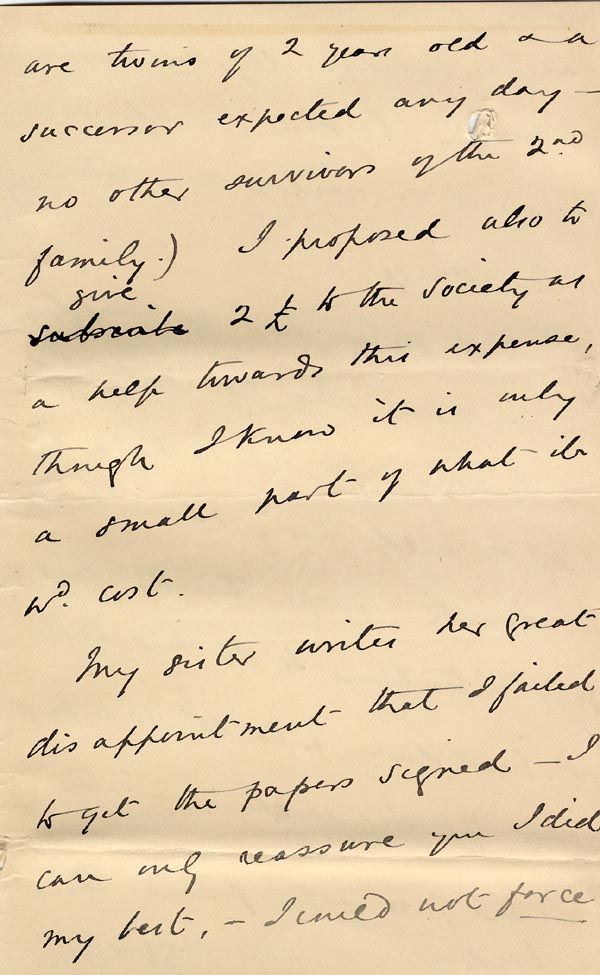 are twins of 2 years old & a
successor expected any day —
no other survivors of the 2nd
family.) I proposed also to
give
subscribe 2 £ to the Society as
a help towards this expense,
though I know it is only
a small part of what it
wd. cost.
My sister writes her great
disappointment that I failed
to get the papers signed — I
can only reassure you I did
my best, — I could not force